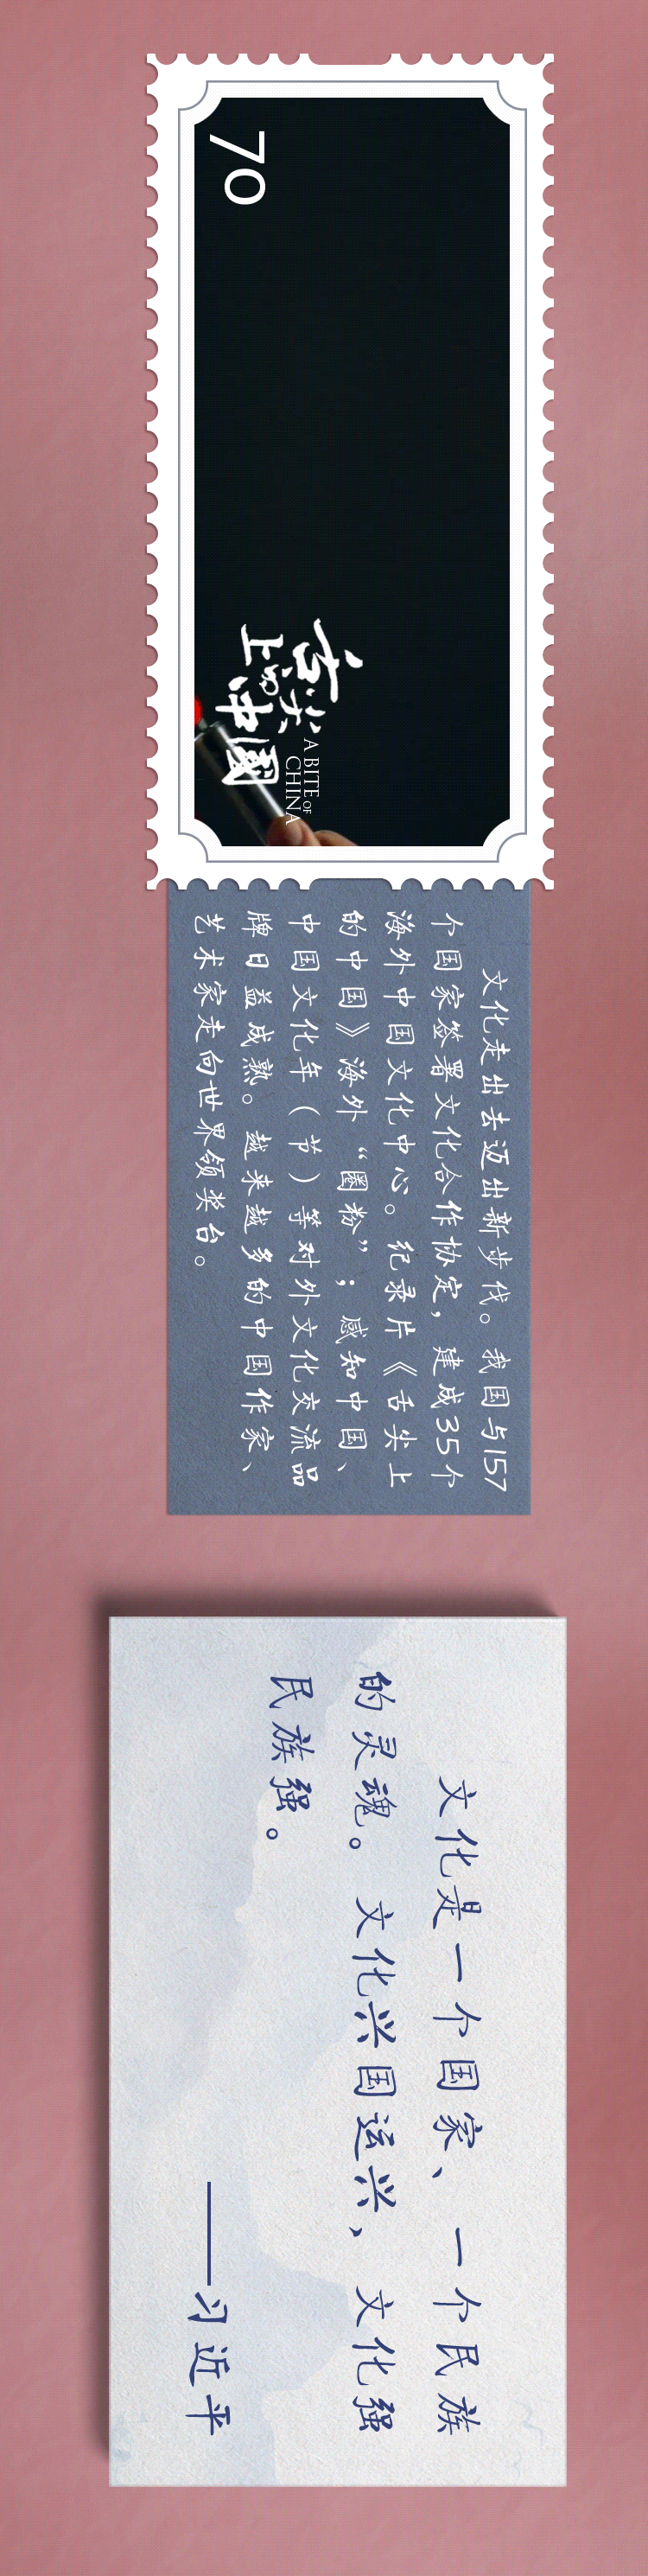 70
舌尖
上的
中國
A BITE OF
CHINA
文化走出去迈出新步伐。我国与157
个国家签署文化合作协定，建成35个
海外中国文化中心。纪录片《舌尖上
的中国》海外“圈粉”；感知中国、
中国文化年（节）等对外文化交流品
牌日益成熟。越来越多的中国作家、
艺术家走向世界领奖台。
文化是一个国家、一个民族
的灵魂。文化兴国运兴，文化强
民族强。
——习近平